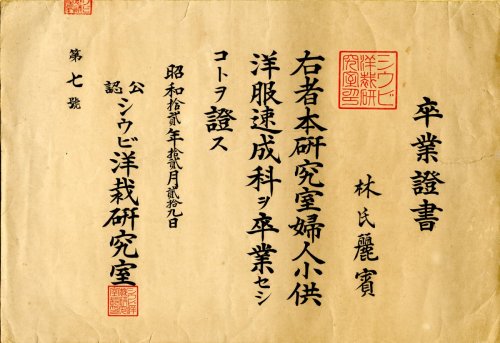 卒業證書
林氏麗賓
シウビ
洋裁研
究室印
右者本研究室婦人小供
洋服速成科ヲ卒業セシ
コトヲ證ス
昭和拾貳年拾貳月貳拾九日
公認シウビ洋裁研究室
第七號